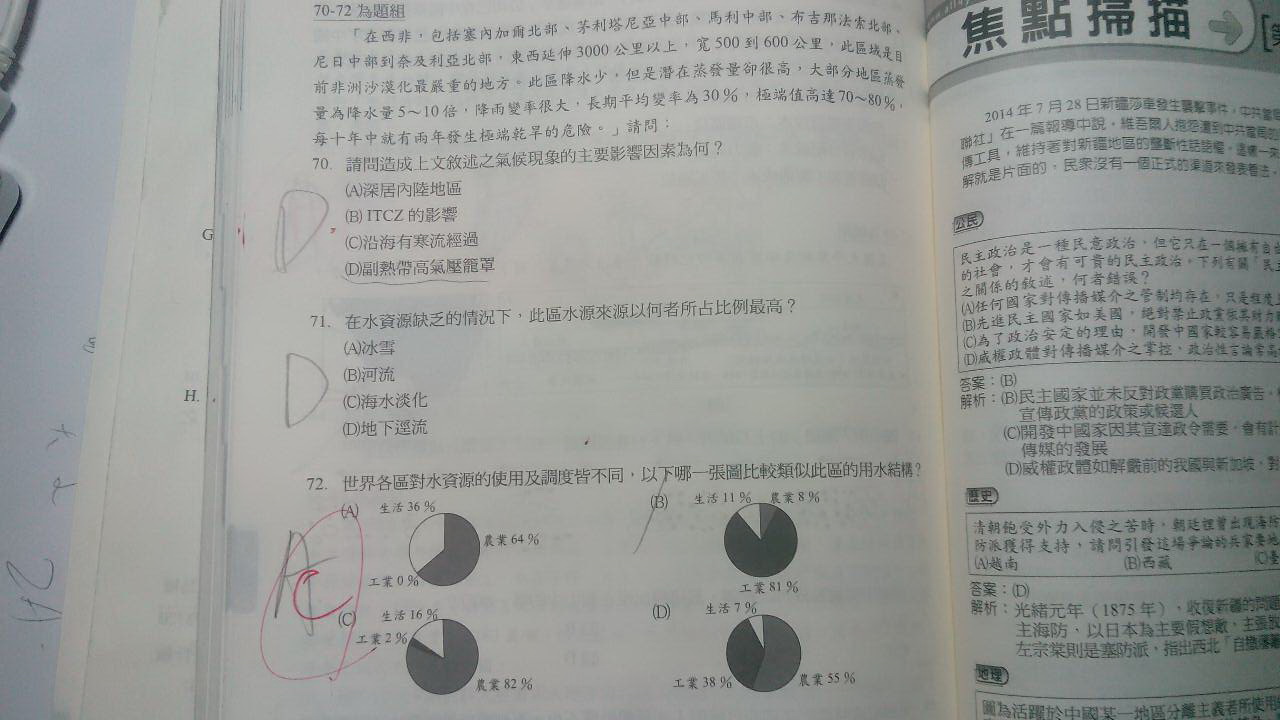 70-72 為題組
「在西非，包括塞內加爾北部、茅利塔尼亞中部、馬利中部、布吉那法索北部、
尼日中部到奈及利亞北部，東西延伸 3000 公里以上，寬 500 到 600 公里，此區域是目
前非洲沙漠化最嚴重的地方。此區降水少，但是潛在蒸發量卻很高，大部分地區蒸發
量為降水量 5～10 倍，降雨變率很大，長期平均變率為 30％，極端值高達 70～80％，
每十年中就有兩年發生極端乾旱的危險。」請問：
70. 請問造成上文敘述之氣候現象的主要影響因素為何？
(A)深居內陸地區
(B) ITCZ 的影響
(C)沿海有寒流經過
(D)副熱帶高氣壓籠罩
D
G
71. 在水資源缺乏的情況下，此區水源來源以何者所占比例最高？
(A)冰雪
(B)河流
(C)海水淡化
(D)地下逕流
D
H.
72. 世界各區對水資源的使用及調度皆不同，以下哪一張圖比較類似此區的用水結構？
(A)
生活 36％
農業 64％
工業 0％
(B)
生活 11％
農業 8％
工業 81％
A
C
(C)
生活 16％
工業 2％
農業 82％
(D)
生活 7％
工業 38％
農業 55％
焦點掃描
2014 年 7 月 28 日新疆莎車發生襲擊事件，中共當
聯社」在一篇報導中說，維吾爾人抱怨遭到中共當局的
傳工具，維持著對新疆地區的壟斷性話語權。這樣一來
解就是片面的，民衆沒有一個正式的渠道來發表看法，
公民
民主政治是一種民意政治，但它只在一個擁有自由
的社會，才會有可貴的民主政治。下列有關「民主
之關係的敘述，何者錯誤？
(A)任何國家對傳播媒介之管制均存在，只是程度
(B)先進民主國家如美國，絕對禁止政黨依其財力
(C)為了政治安定的理由，開發中國家較容易嚴格
(D)威權政體對傳播媒介之掌控，政治性言論常
答案：(B)
解析：(B)民主國家並未反對政黨購買政治廣告，
宣傳政黨的政策或候選人
(C)開發中國家因其宣達政令需要，會有計
傳媒的發展
(D)威權政體如解嚴前的我國與新加坡，對
歷史
清朝飽受外力入侵之苦時，朝廷裡曾出現海防
防派獲得支持，請問引發這場爭論的兵家要地
(A)越南
(B)西藏
答案：(D)
解析：光緒元年（1875 年），收復新疆的問題
主海防、以日本為主要假想敵，主張放
左宗棠則是塞防派，指出西北「自撤藩籬
地理
圖為活躍於中國某一地區分離主義者所使用